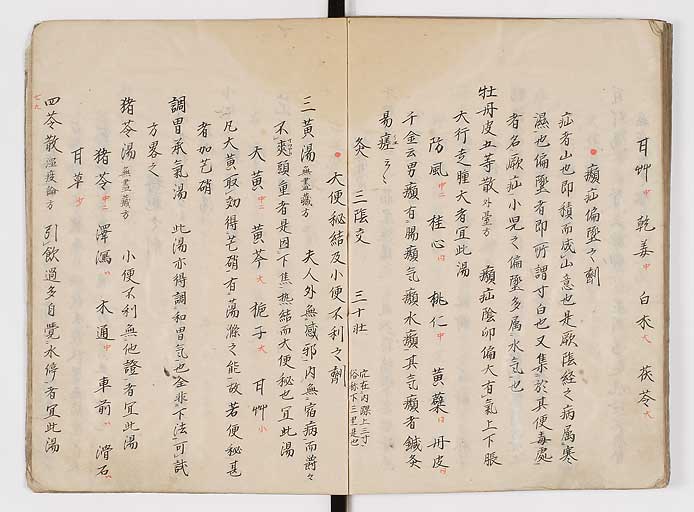 甘艸中 乾姜中 白朮大 茯苓大
癩疝偏墜之劑
疝者山也即積而成山意也是厥陰経之病属寒
濕也偏墜者即所謂寸白也又集於其便毒處
者名厥疝小児之偏墜多属水氣也
牡丹皮五等散外臺方 癩疝陰卵偏大有氣上下脹
大行走腫大者宜此湯
防風中二 桂心 桃仁中 黄蘗 丹皮
千金云男癩有腸癩氣癩水癩其氣癩者鍼灸
易瘥云々
灸 三陰交 三十壮 穴在内踝上三寸
俗称下三里是也
大便秘結及小便不利之劑
三黄湯無盡藏方 夫人外無感邪内無宿病而蔚々
不爽頭重者是因下焦热結而大便秘也宜此湯
大黄中二 黄芩大 梔子大 甘艸小
凡大黄取効得芒硝有蕩滌之能故若便秘甚
者加芒硝
調胃承氣湯 此湯亦得調和胃氣也全非下法可試
方畧之
猪苓湯無盡藏方 小便不利無他證者宜此湯
猪苓中二 澤瀉 木通中 車前 滑石
甘草少
四苓散温疫論方 引飲過多自覺水停者宜此湯
七九